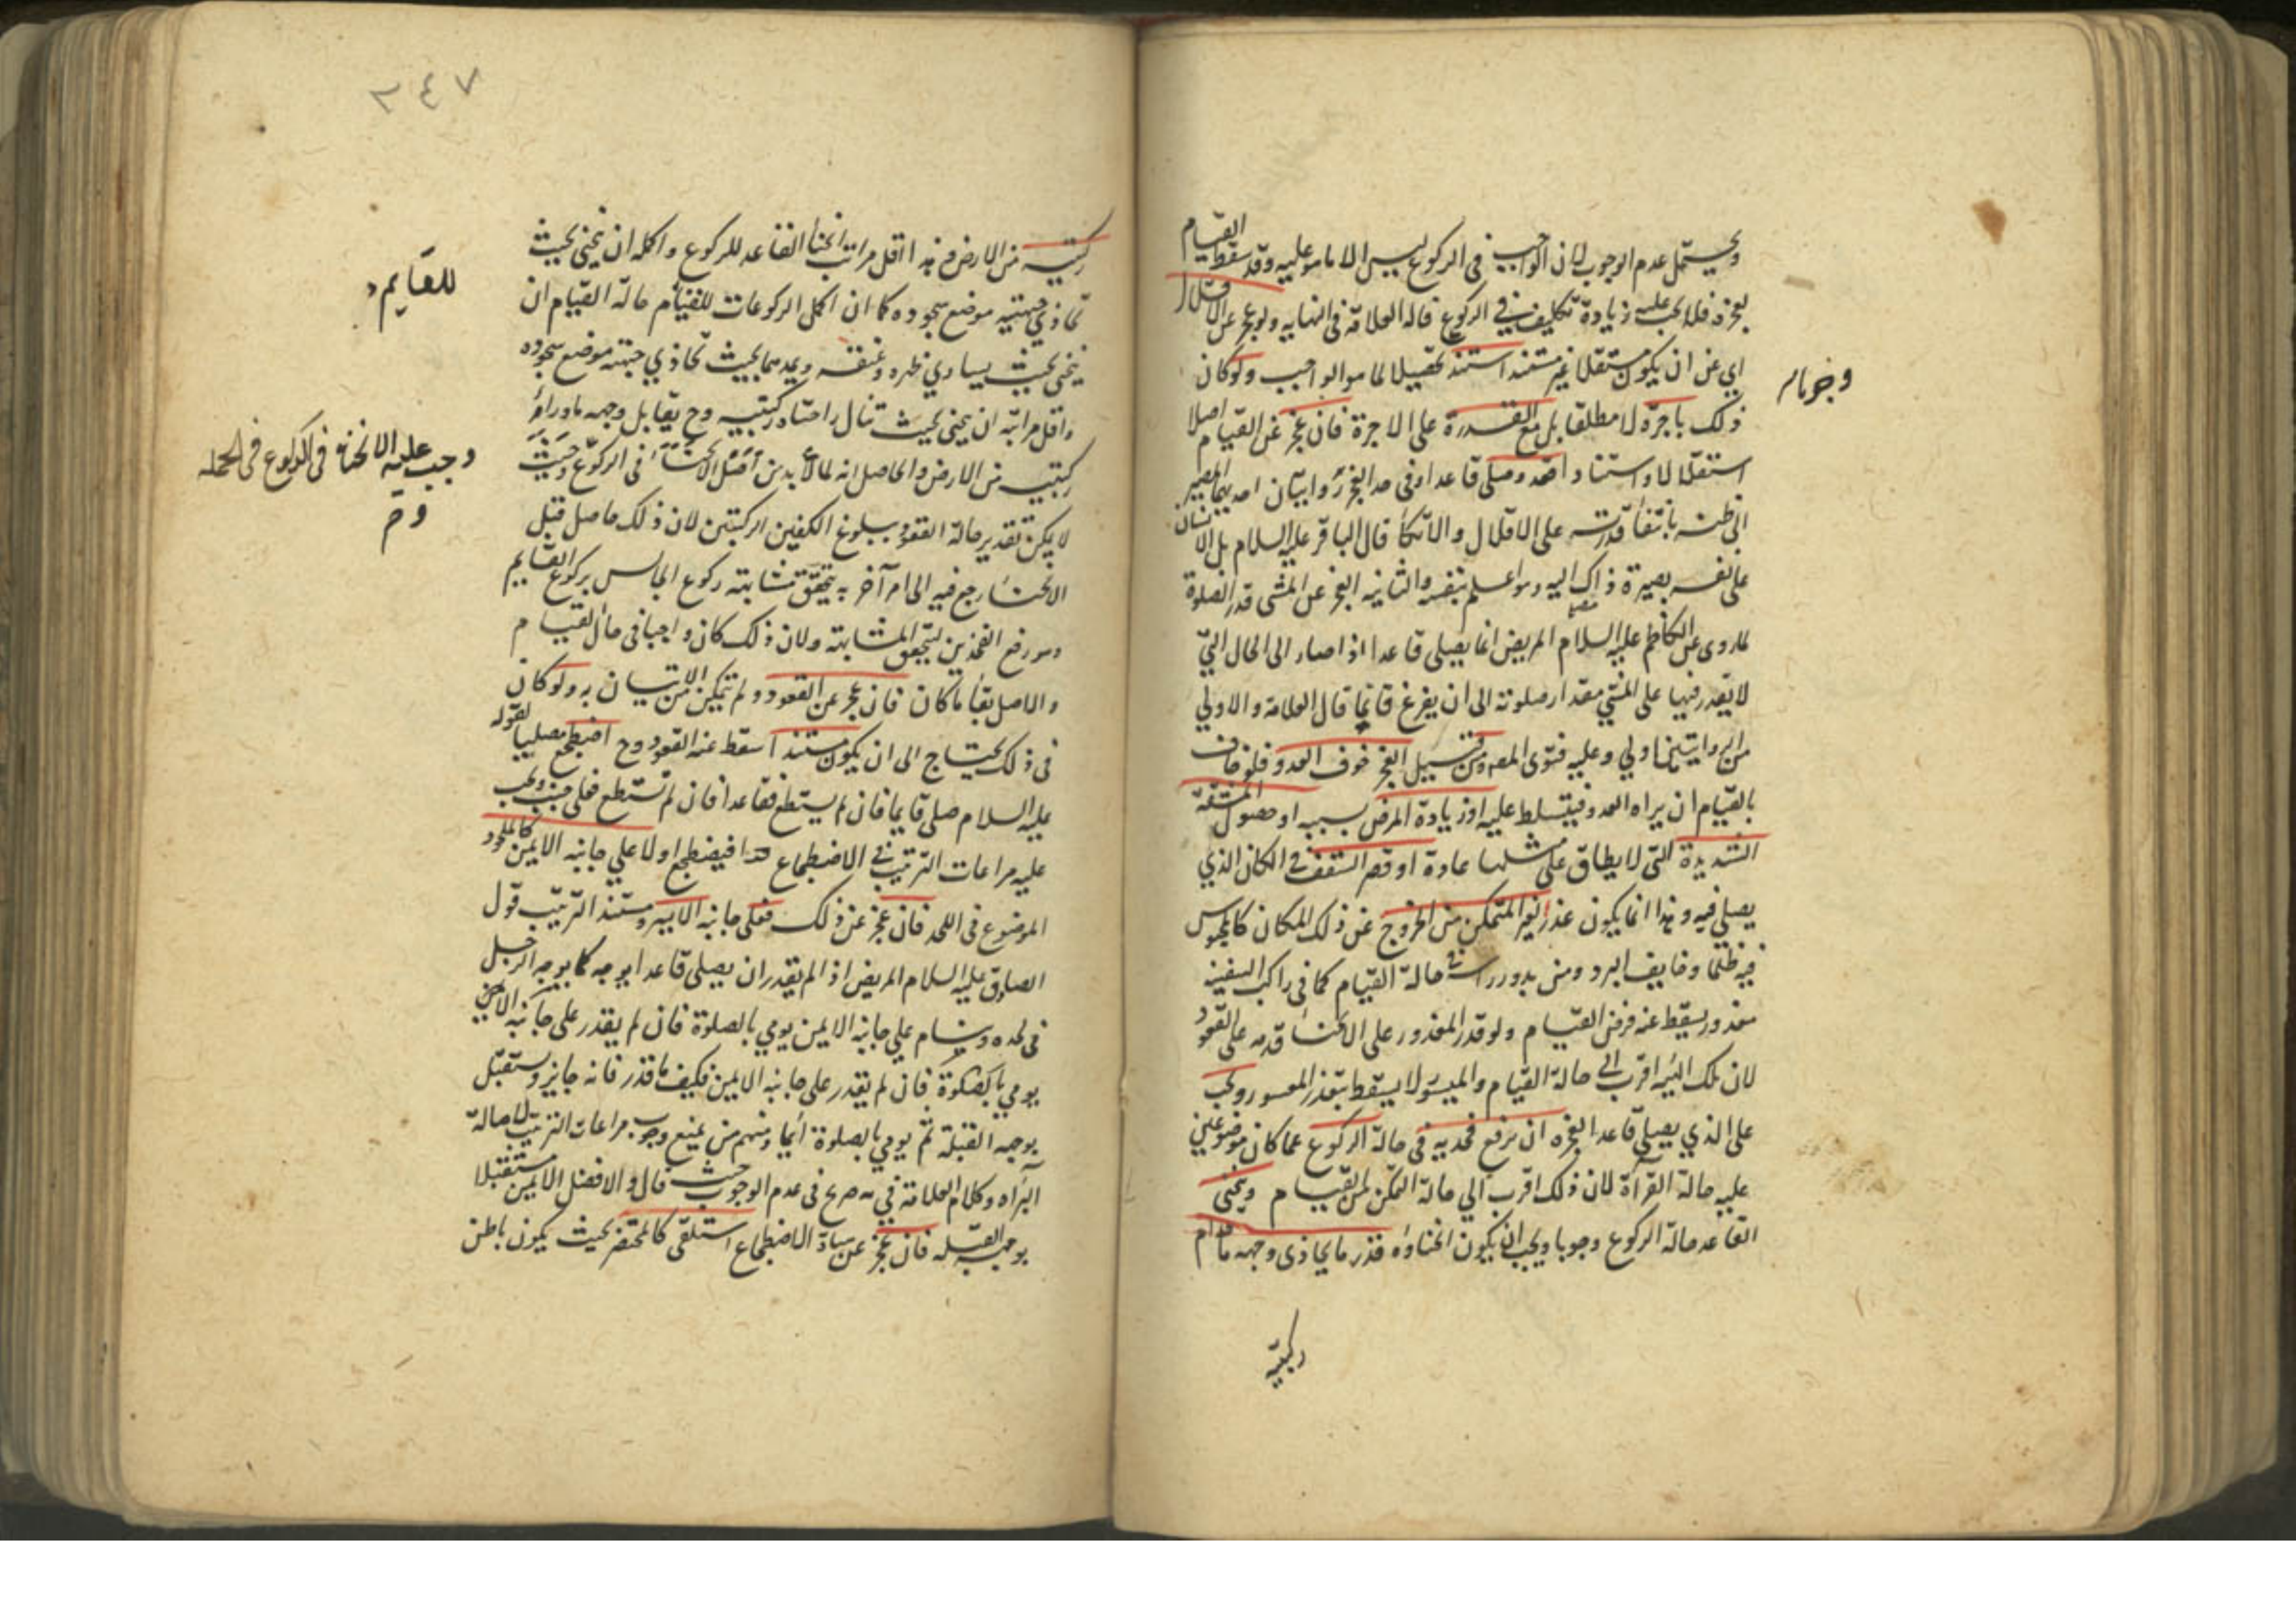 ويحتمل عدم الوجوب لان الواجب في الركوع ليس الا ما هو عليه وقد سقط القيام
لعجزه فلا يجب عليه زيادة تكليف في الركوع قاله العلامة في النهايه ولو عجز عن الاقلال
اي عن ان يكون مستقلا غير مستند استند تحصيلا لما هو الواجب ولو كان
وجوبا
ذلك باجرة لا مطلقا بل مع القدرة على الاجرة فان عجز عن القيام اصلا
استقلالا واستنادا قعد وصلى قاعدا وفي حد العجز روايتان احديهما المصير
الى ظنه بانتفا قدرته على الاقلال والاتكا قال الباقر عليه السلام بل الانسان
على نفسه بصيرة ذاك اليه وهو اعلم بنفسه والثانيه العجز عن المشي قدر الصلوة
لما روى عن الكاظم عليه السلام المريض انما يصلى قاعدا اذا صار الى الحال التي
لا يقدر فيها على المشي مقدار صلوته الى ان يفرغ قائما قال العلامة والاولي
من الروايتين اولي وعليه فتوى المصـ ومن قبيل العجز خوف العدو فلو خاف
بالقيام ان يراه العدو فيتسلط عليه او زيادة المرض بسببه او حصول المشقة
الشديدة التي لا يطاق على مثلها عادة او قصر السقف في المكان الذي
يصلي فيه وهذا انما يكون عذر لغير المتمكن من الخروج عن ذلك المكان كالمحبوس
فيه ظلما وخايف البرد ومن يدور راسه في حالة القيام كما في راكب السفينه
معذور يسقط عنه فرض القيام ولو قدر المعذور على الانحنا قدمه على القعود
لان تلك الهيئه اقرب الى حالة القيام والميسور لا يسقط بتعذر المعسور ويجب
على الذي يصلي قاعدا لعجزه ان يرفع فخديه في حالة الركوع عما كان موضوعين
عليه حالة القرآة لان ذلك اقرب الي حالة المتمكن من القيام وينحنى
القاعد حالة الركوع وجوبا ويجب ان يكون انحناؤه قدر ما يحاذى وجهه ما قدام
ركبتيه
٢٤٧
ركبتيه من الارض فهذا اقل مراتب انحنا القاعد للركوع واكمله ان ينحنى بحيث
تحاذي جبهتيه موضع سجوده كما ان اكمل الركوعات للقيام حالة القيام ان
للقايم
ينحنى بحيث يساوي ظهره وعنقه ويمدهما بحيث تحاذي جبهته موضع سجوده
واقل مراتبه ان ينحنى بحيث تنال راحتاه ركبتيه وح يقابل وجهه ما وراء
ركبتيه من الارض والحاصل انه لما لا بد من اقل الانحناء في الركوع وحيث
وجب عليه الانحنا في الركوع في الجمله
وح
لا يمكن تقدير حالة القعود ببلوغ الكفين الركبتين لان ذلك حاصل قبل
الانحنا رجع فيه الى امر آخر به يتحقق مشابهته ركوع الجالس بركوع القايم
وهو رفع الفخذين ليتحقق المشابهته ولان ذلك كان واجبا في حال القيام
والاصل بقا ما كان فان عجز عن القعود ولم يتمكن من الاتيان به ولو كان
في ذلك يحتاج الى ان يكون مستندا سقط عنه القعود وح اضطجع مصليا لقوله
عليه السلام صلي قايما فان لم يستطع فقاعدا فان لم تستطع فعلى جنب ويجب
عليه مراعات الترتيب في الاضطجاع هذا فيضطجع اولا علي جانبه الايمن كالملحود
الموضوع في اللحد فان عجز عن ذلك فعلى جانبه الايسر ومستند الترتيب قول
الصادق عليه السلام المريض اذا لم يقدر ان يصلى قاعدا يوجه كما يوجه الرجل
في لحده وينام علي جانبه الايمن يومي بالصلوة فان لم يقدر على جانبه الايمن
يومي بالصلوة فان لم يقدر على جانبه الايمن فكيف ما قدر فانه جايز ويستقبل
بوجهه القبلة ثم يومي بالصلوة ايما ومنهم من يمنع وجوب مراعات الترتيب لاصالة
البراه وكلام العلامة فيه صريح في عدم الوجوب حيث قال والافضل الايمن مستقبلا
بوجهه القبله فان عجز عن حالة الاضطجاع استلقى كالمحتضر بحيث يكون باطن